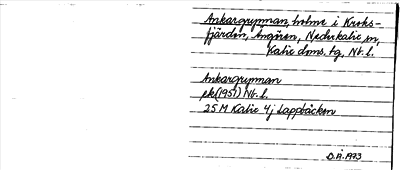 Ankargrynnan, holme i Kroks-
fjärden, Ängön, Nederkalix sn,
Kalix dms. tg, Nt. l.
Ankargrynnan
ek (1951) Nt. l.
25 M Kalix 4j Lappbäcken
D.Å. 1973